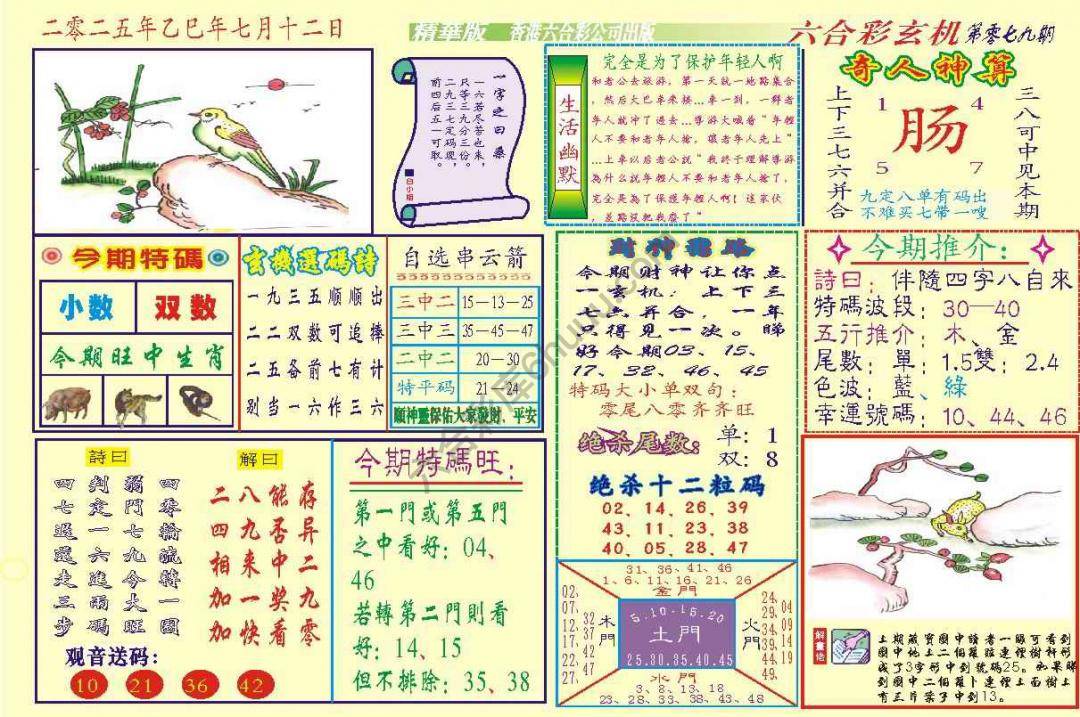 二零二五年乙巳年七月十二日
精華版 香港六合彩公司出版
六合彩玄机 第零七九期
一字之曰桑
一六若尽若也来,
只等六九分份,
二九三七三份,
前四后五一定可码取。
白小姐
生活幽默
完全是为了保护年轻人啊
和老公去旅游，第一天就一地路集合
，然后大巴车来接...车一到，一群老
年人就冲了过去...导游大喊着＂年輕
人不要和老年人抢，讓老年人先上＂
...上车以后老公説＂我終于理解導游
為什么説年輕人不要和老年人搶了，
完全是為了保護年輕人啊！這家伙
，差點没把我擠了＂
奇人神算
上下三七六并合
1 4
肠
5 7
三八可中见本期
九定八单有码出
不难买七带一嗖
今期特碼
小数 双数
今期旺中生肖
玄機選碼詩
一九三五顺顺出
二二双数可追棒
二五备前七有计
别当一六作三六
自选串云箭
三中二 15—13—25
三中三 35—45—47
二中二 20—30
特平码 21—24
順神靈保佑大家發財、平安
財神指路
今期财神让你点
一玄机：上下三
七六并合，一年
只得见一次。睇
好今期03、15、
17、32、46、45
特码大小单双句：
零尾八零齐齐旺
绝杀尾数：
单：1
双：8
绝杀十二粒码
02、14、26、39
43、11、23、38
40、05、28、47
今期推介：
詩曰：伴隨四字八自來
特碼波段：30—40
五行推介：木、金
尾數：單：1.5雙：2.4
色波：藍、綠
幸運號碼：10、44、46
詩曰
四七選選走三步
判定一六進兩碼
弱門七九今大旺
四零輪流轉一圈
解曰
二八能存
四九否异
相来中二
加一奖九
加快看零
观音送码：
10 21 36 42
今期特碼旺：
第一門或第五門
之中看好：04、
46
若轉第二門則看
好：14、15
但不排除：35、38
31、36、41、46
1、6、11、16、21、26
金門
02、07、12、17、22、27、
32、37、42、47
木門
5.10.15.20
土門
25.30.35.40.45
火門
24、29、34、39、44、49、
04、09、14、19
水門
3、8、13、18
23、28、33、38、43、48
解畫佬
上期藏寶圖中讀者一眼可看到
圖中地上二個蘿蔔連埋樹杆形
成了3字形中到號碼25。如果睇
到圖中二個蘿卜連埋上面樹上
有三片葉子中到13。